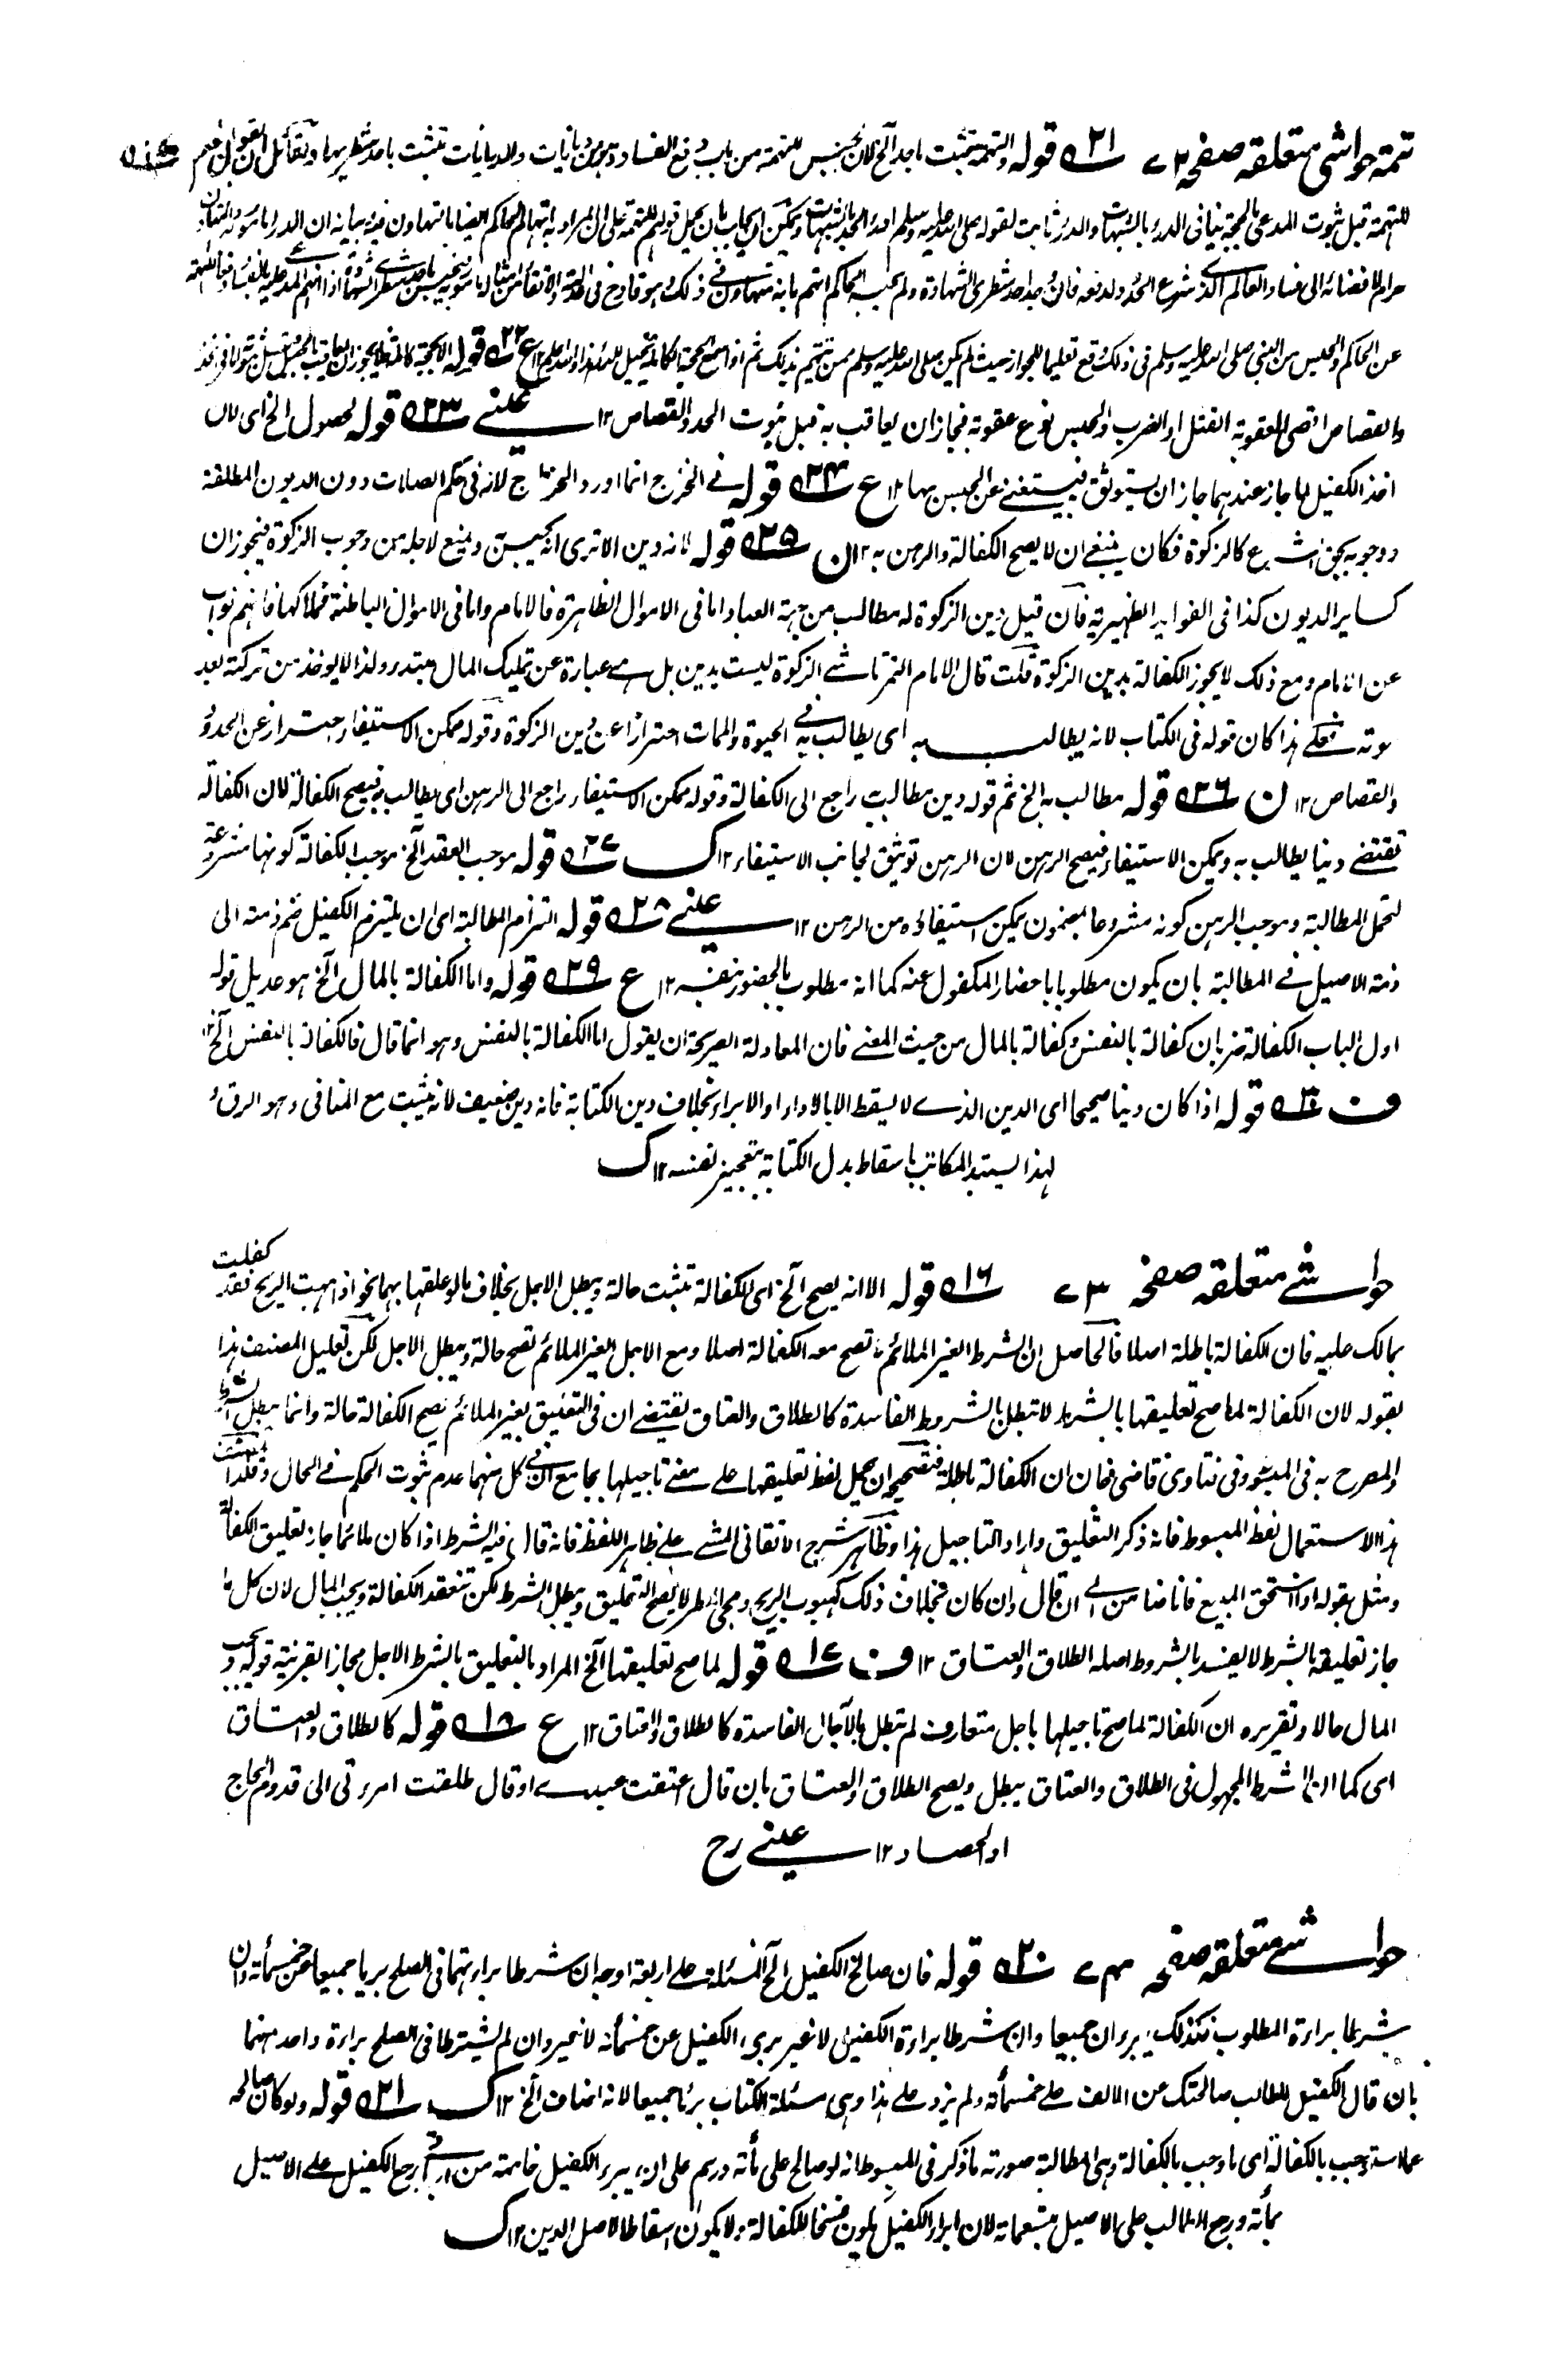 تتمہ حواشی متعلقہ صفحہ ۷۲ ۲۱ قوله والتهمة تثبت باحد الخ لان الحبس للتهمة من باب دفع الفساد وهو من باب الديانات والديانات تثبت باحد شطريها
للتهمة قبل ثبوت المدعى بالحجة ينافى الدرء بالشبهات والدرء ثابت لقوله صلى الله عليه وسلم ادرءوا الحدود بالشبهات ويمكن ان يجاب بان يحمل قولهم للتهمة على ان المراد به اتهام الحاكم ايضا بالتهاون فيه بيانه ان الدرء مامور به والتهاون
حرام لافضائه الى فساد العالم الذى شرع الحد ولدفعه فان وجد احد شطرى الشهادة ولم يحبسه الحاكم اتهم بانه متهاون فى ذلك وهو قادح فى
عن الحاكم والحبس من النبى صلى الله عليه وسلم فى ذلك وقع تعليما للجواز حيث لم يكن صلى الله عليه وسلم ممن يتهم بذلك ثم اذا سمع الحجة الكاملة ۲۲ قوله الا بحجة كاملة
والقصاص اقصى العقوبة القتل او الضرب والحبس نوع عقوبة فجاز ان يعاقب به قبل ثبوت الحد والقصاص ۱۲ عينى ۲۳ قوله لحصول الخ اى لان
اخذ الكفيل لما جاز عندهما جاز ان يستوثق فيستغنى عن الحبس بها ۱۲ ع ۲۴ قوله فى الخرج انما اورد الخراج لانه فى حكم الصلات دون الديون المطلقة
ووجوبه بحق الشرع كالزكوة فكان ينبغى ان لا يصح الكفالة والرهن به ۱۲ ن ۲۵ قوله لانه دين الا ترى انه يحبس ويمنع لاجله من وجوب الزكوة فيجوز ان
كساير الديون كذا فى الفوايد الظهيرية فان قيل دين الزكوة له مطالب من جهة العباد اما فى الاموال الظاهرة فالامام واما فى الاموال الباطنة فملاكها فانهم نواب
عن الامام ومع ذلك لا يجوز الكفالة بدين الزكوة قلت قال الامام التمرتاشى الزكوة ليست بدين بل هى عبارة عن تمليك المال مبتدء ولذا لا يوخذ من تركته بعد
موته فعلى هذا كان قوله فى الكتاب لانه يطالب به اى يطالب به فى الحيوة والممات احترازا عن دين الزكوة وقوله ممكن الاستيفاء احتراز عن الحدود
والقصاص ۱۲ ن ۲۶ قوله مطالب به الخ ثم قوله دين مطالب به راجع الى الكفالة وقوله ممكن الاستيفاء راجع الى الرهن اى يطالب به فيصح الكفالة لان الكفالة
تقتضى دينا يطالب به ويمكن الاستيفاء فيصح الرهن لان الرهن توثيق لجانب الاستيفاء ۱۲ ک ۲۷ قوله موجب العقد الخ موجب الكفالة كونها مشروعة
لتحمل المطالبة وموجب الرهن كونه مشروعا بمضمون يمكن استيفاؤه من الرهن ۱۲ عينى ۲۸ قوله التزام المطالبة اى ان يلتزم الكفيل ضم ذمته الى
ذمة الاصيل فى المطالبة بان يكون مطلوبا باحضار المكفول عنه كما انه مطلوب بالحضور بنفسه ۱۲ ع ۲۹ قوله واما الكفالة بالمال الخ هو عديل قوله
اول الباب الكفالة ضربان كفالة بالنفس وكفالة بالمال من حيث المعنى فان المعادلة الصريحة ان يقول اما الكفالة بالنفس وهو انما قال فالكفالة بالنفس الخ ۱۲
ف ۳۰ قوله اذا كان دينا صحيحا اى الدين الذى لا يسقط الا بالاداء او الابراء بخلاف دين الكتابة فانه دين ضعيف لانه يثبت مع المنافى وهو الرق و
لهذا يستبد المكاتب باسقاط بدل الكتابة بتعجيز نفسه ۱۲ ک
حواشی متعلقہ صفحہ ۷۳ ۱۶ قوله الا انه يصح الخ اى الكفالة تثبت حالة ويبطل الاجل بخلاف ما لو علقها بهما نحو اذا هبت الريح فقد كفلت
بمالك عليه فان الكفالة باطلة اصلا فالحاصل ان الشرط الغير الملائم لا تصح معه الكفالة اصلا ومع الاجل الغير الملائم تصح حالة ويبطل الاجل لكن تعليل المصنف هذا
بقوله لان الكفالة لما صح تعليقها بالشرط لا تبطل بالشروط الفاسدة كالطلاق والعتاق يقتضى ان فى التعليق بغير الملائم تصح الكفالة حالة وانما يبطل الشرط
والمصرح به فى المبسوط وفى فتاوى قاضى خان ان الكفالة باطلة فتصحيحه ان يحمل لفظ تعليقها على معنى تاجيلها بجامع ان فى كل منهما عدم ثبوت الحكم فى الحال وقلد المصنف
هذا الاستعمال لفظ المبسوط فانه ذكر التعليق واراد التاجيل هذا وظاهر شرح الاتقانى المشى على ظاهر اللفظ فانه قال فيه الشرط اذا كان ملائما جاز تعليق الكفالة
ومثل بقوله اذا استحق المبيع فانا ضامن الى ان قال وان كان بخلاف ذلك كهبوب الريح ومجى المطر لا يصح التعليق ويبطل الشرط لكن تنعقد الكفالة ويجب المال لان كل ما
جاز تعليقه بالشرط لا يفسد بالشروط اصله الطلاق والعتاق ۱۲ ف ۱۷ قوله لما صح تعليقها الخ المراد بالتعليق بالشرط الاجل مجازا بقرينة قوله ويجب
المال حالا وتقريره ان الكفالة لما صح تاجيلها باجل متعارف لم تبطل بالآجال الفاسدة كالطلاق والعتاق ۱۲ ع ۱۸ قوله كالطلاق والعتاق
اى كما ان الشرط المجهول فى الطلاق والعتاق يبطل ويصح الطلاق والعتاق بان قال اعتقت عبدى او قال طلقت امرءتى الى قدوم الحاج
او الحصاد ۱۲ عينى رح
حواشی متعلقہ صفحہ ۷۴ ۲۰ قوله فان صالح الكفيل الخ المسئلة على اربعة اوجه ان شرطا براءتهما فى الصلح بريا جميعا عن خمسمائة وان
شرطا براءة المطلوب فكذلك يبرءان جميعا وان شرطا براءة الكفيل لا غير برى الكفيل عن خمسمائة لا غير وان لم يشترطا فى الصلح براءة واحد منهما
بان قال الكفيل للطالب صالحتك عن الالف على خمسمائة ولم يزد على هذا وهى مسئلة الكتاب برئا جميعا لانه اضاف الخ ۱۲ ک ۲۱ قوله ولو كان صالحه
عما استوجب بالكفالة اى ما وجب بالكفالة وهى المطالبة صورته ما ذكر فى المبسوط انه لو صالح على مائة درهم على ان يبرء الكفيل خاصة من الباقى رجع الكفيل على الاصيل
بمائة ورجع الطالب على الاصيل بتسعمائة لان ابراء الكفيل يكون فسخا للكفالة ولا يكون اسقاطا لاصل الدين ۱۲ ک